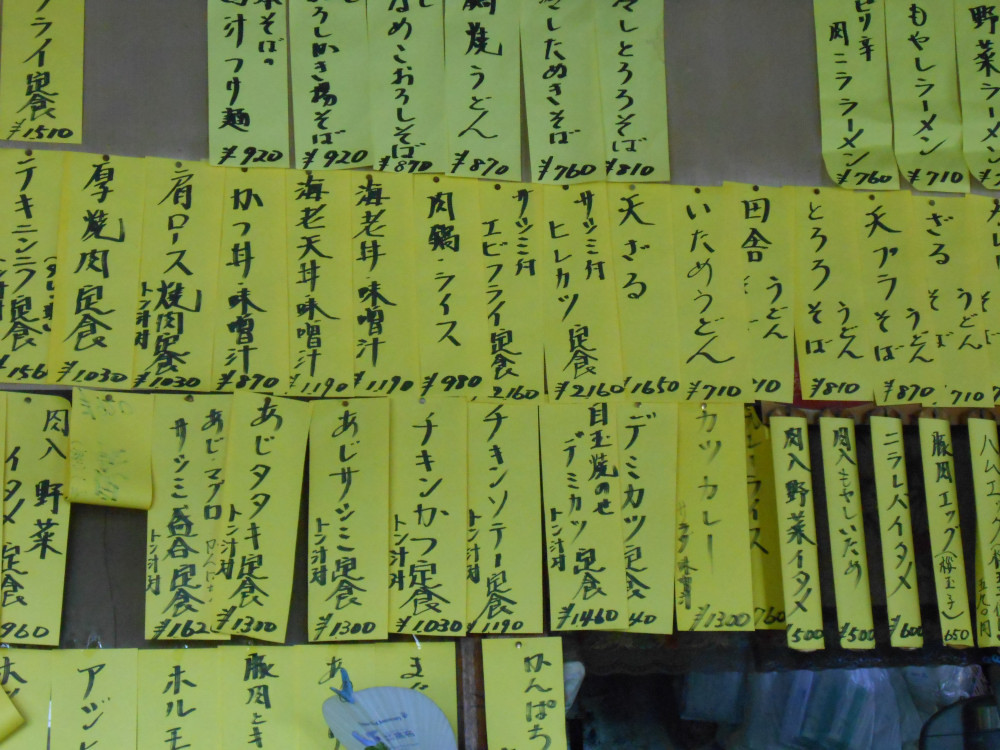 フライ定食
¥1510
肉汁つけ麺
¥920
おろしかき揚そば
¥920
なめこおろしそば
¥870
鍋焼うどん
¥870
冷したぬきそば
¥760
冷しとろろそば
¥810
ピリ辛
肉ニララーメン
¥760
もやしラーメン
¥710
野菜ラーメン
テキニンニク定食
¥156
厚焼肉定食
¥1030
肩ロース焼肉定食
トン汁付
¥1030
かつ丼・味噌汁
¥870
海老天丼・味噌汁
¥1190
海老丼・味噌汁
¥1190
肉鍋・ライス
¥980
サシミ付
エビフライ定食
2160
サシミ付
ヒレカツ定食
¥2160
天ざる
¥1650
いためうどん
¥710
田舎
うどん
710
とろろそば
うどん
¥810
天プラそば
うどん
¥870
ざるそば
うどん
710
肉入野菜
イタメ定食
960
あじ・マグロ
サシミ盛合定食
トン汁付
¥162
あじタタキ定食
トン汁付
¥1300
あじサシミ定食
トン汁付
¥1300
チキンかつ定食
トン汁付
¥1030
チキンソテー定食
トン汁付
¥1190
目玉焼のせ
デミカツ定食
トン汁付
¥1460
デミカツ定食
40
カツカレー
¥1300
ライス
760
肉入野菜イタメ
¥500
肉入もやしいため
¥500
ニラレバイタメ
¥600
豚肉エッグ(桜玉子)
650
ハムエ
アジ
ホルモ
豚肉とキ
あ
ま
かんぱち